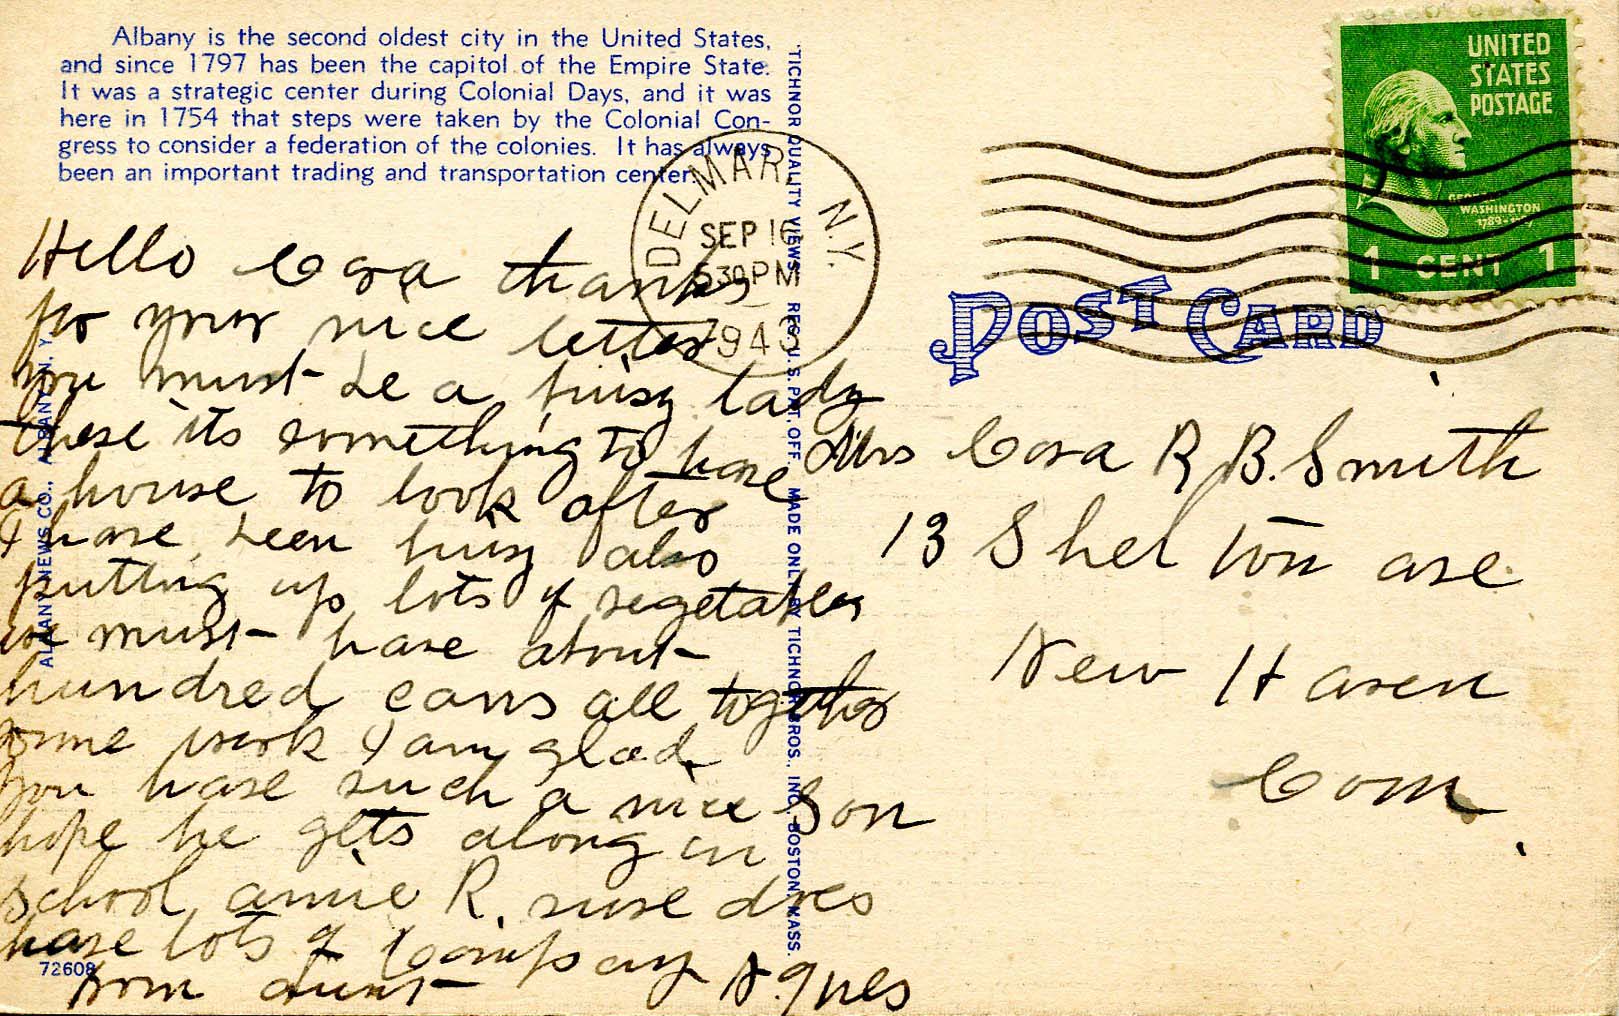 Albany is the second oldest city in the United States,
and since 1797 has been the capitol of the Empire State.
It was a strategic center during Colonial Days, and it was
here in 1754 that steps were taken by the Colonial Con-
gress to consider a federation of the colonies. It has always
been an important trading and transportation center.
Hello Cora thanks
for your nice letter
you must be a busy lady
these its something to have
a house to look after
I have been busy also
putting up lots of vegetables
we must have about
hundred cans all together
some work I am glad
you have such a nice son
hope he gets along in
school annie R. sure does
have lots of Company
from aunt Agnes
ALBANY NEWS CO., ALBANY, N. Y.
72608
TICHNOR QUALITY VIEWS. REG. U. S. PAT. OFF. MADE ONLY BY TICHNOR BROS., INC., BOSTON, MASS.
DELMAR, N.Y.
SEP 16
530 PM
1943
UNITED
STATES
POSTAGE
GEORGE
WASHINGTON
1789-1797
1 CENT 1
POST CARD
Mrs Cora R B. Smith
13 Shelton ave
New Haven
Conn.